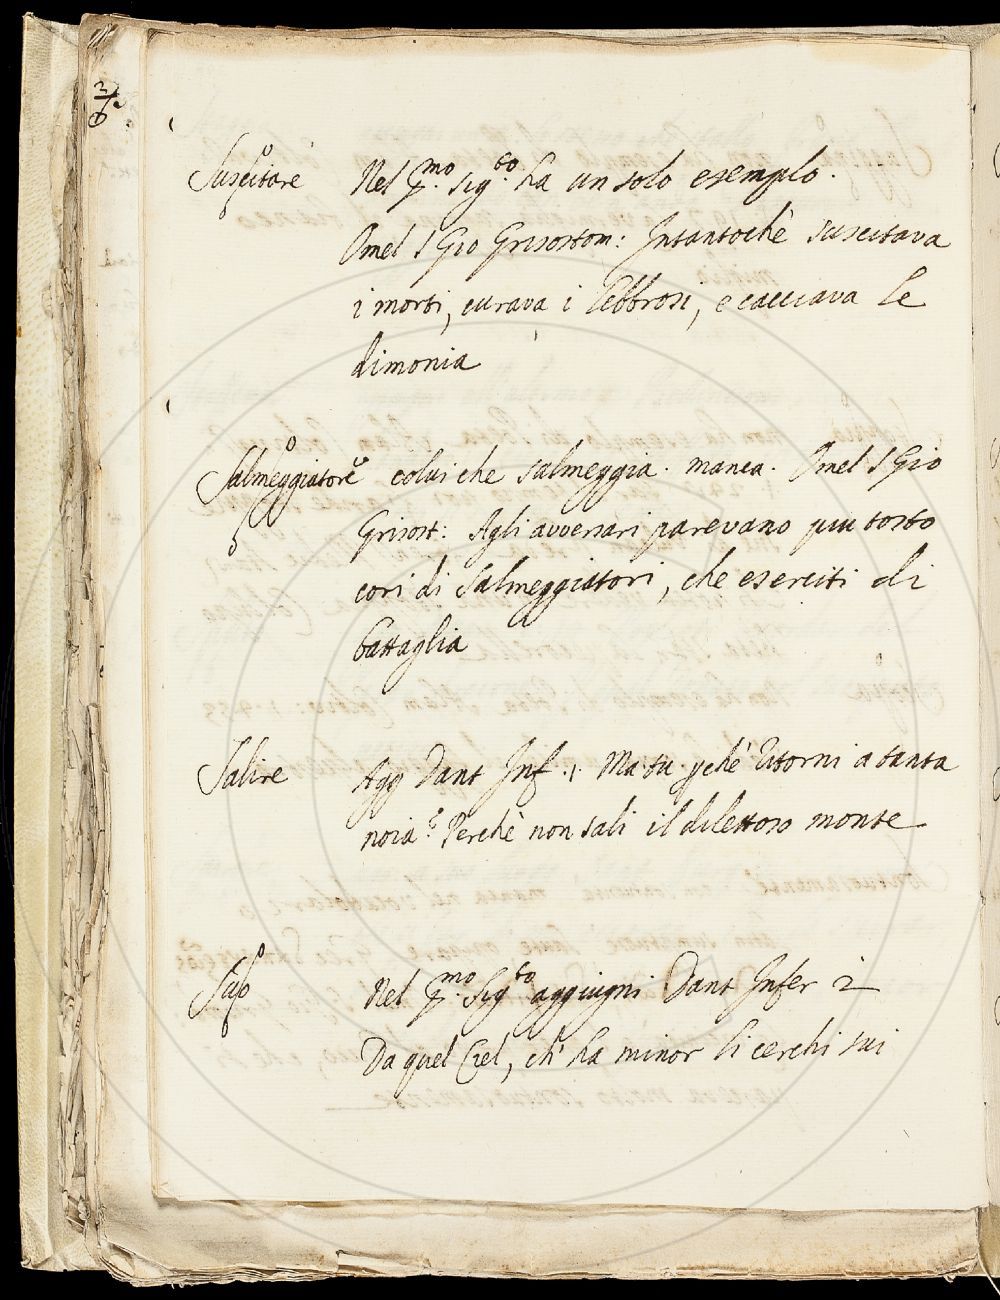 Suscitare Nel p.mo sig.to ha un solo esempio.
Omel S Gio Grisostom: Intantochè suscitava
i morti, curava i lebbrosi, e cacciava le
dimonia
Salmeggiatore colui che salmeggia. manca. Omel S Gio
Grisost: Agli avversari parevano piu tosto
cori di salmeggiatori, che eserciti di
battaglia
Salire Agg Dant Inf. 1. Ma tu pchè ritorni a tanta
noia? Perchè non sali il dilettoso monte
Suso Nel p.mo Sig.to aggiugni Dant Infer 2
Da quel Ciel, ch' ha minor li cerchi sui